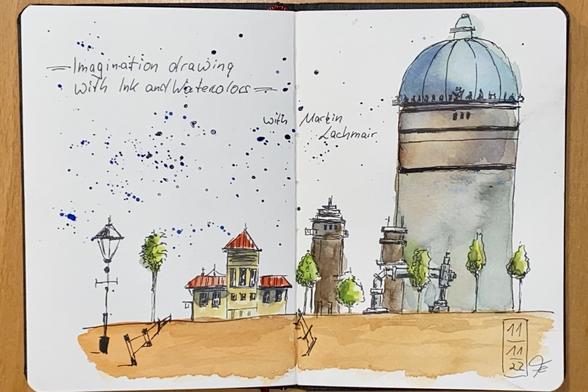 Imagination drawing
with Ink and Waterolors
with Martin
Lachmair
11
11
22